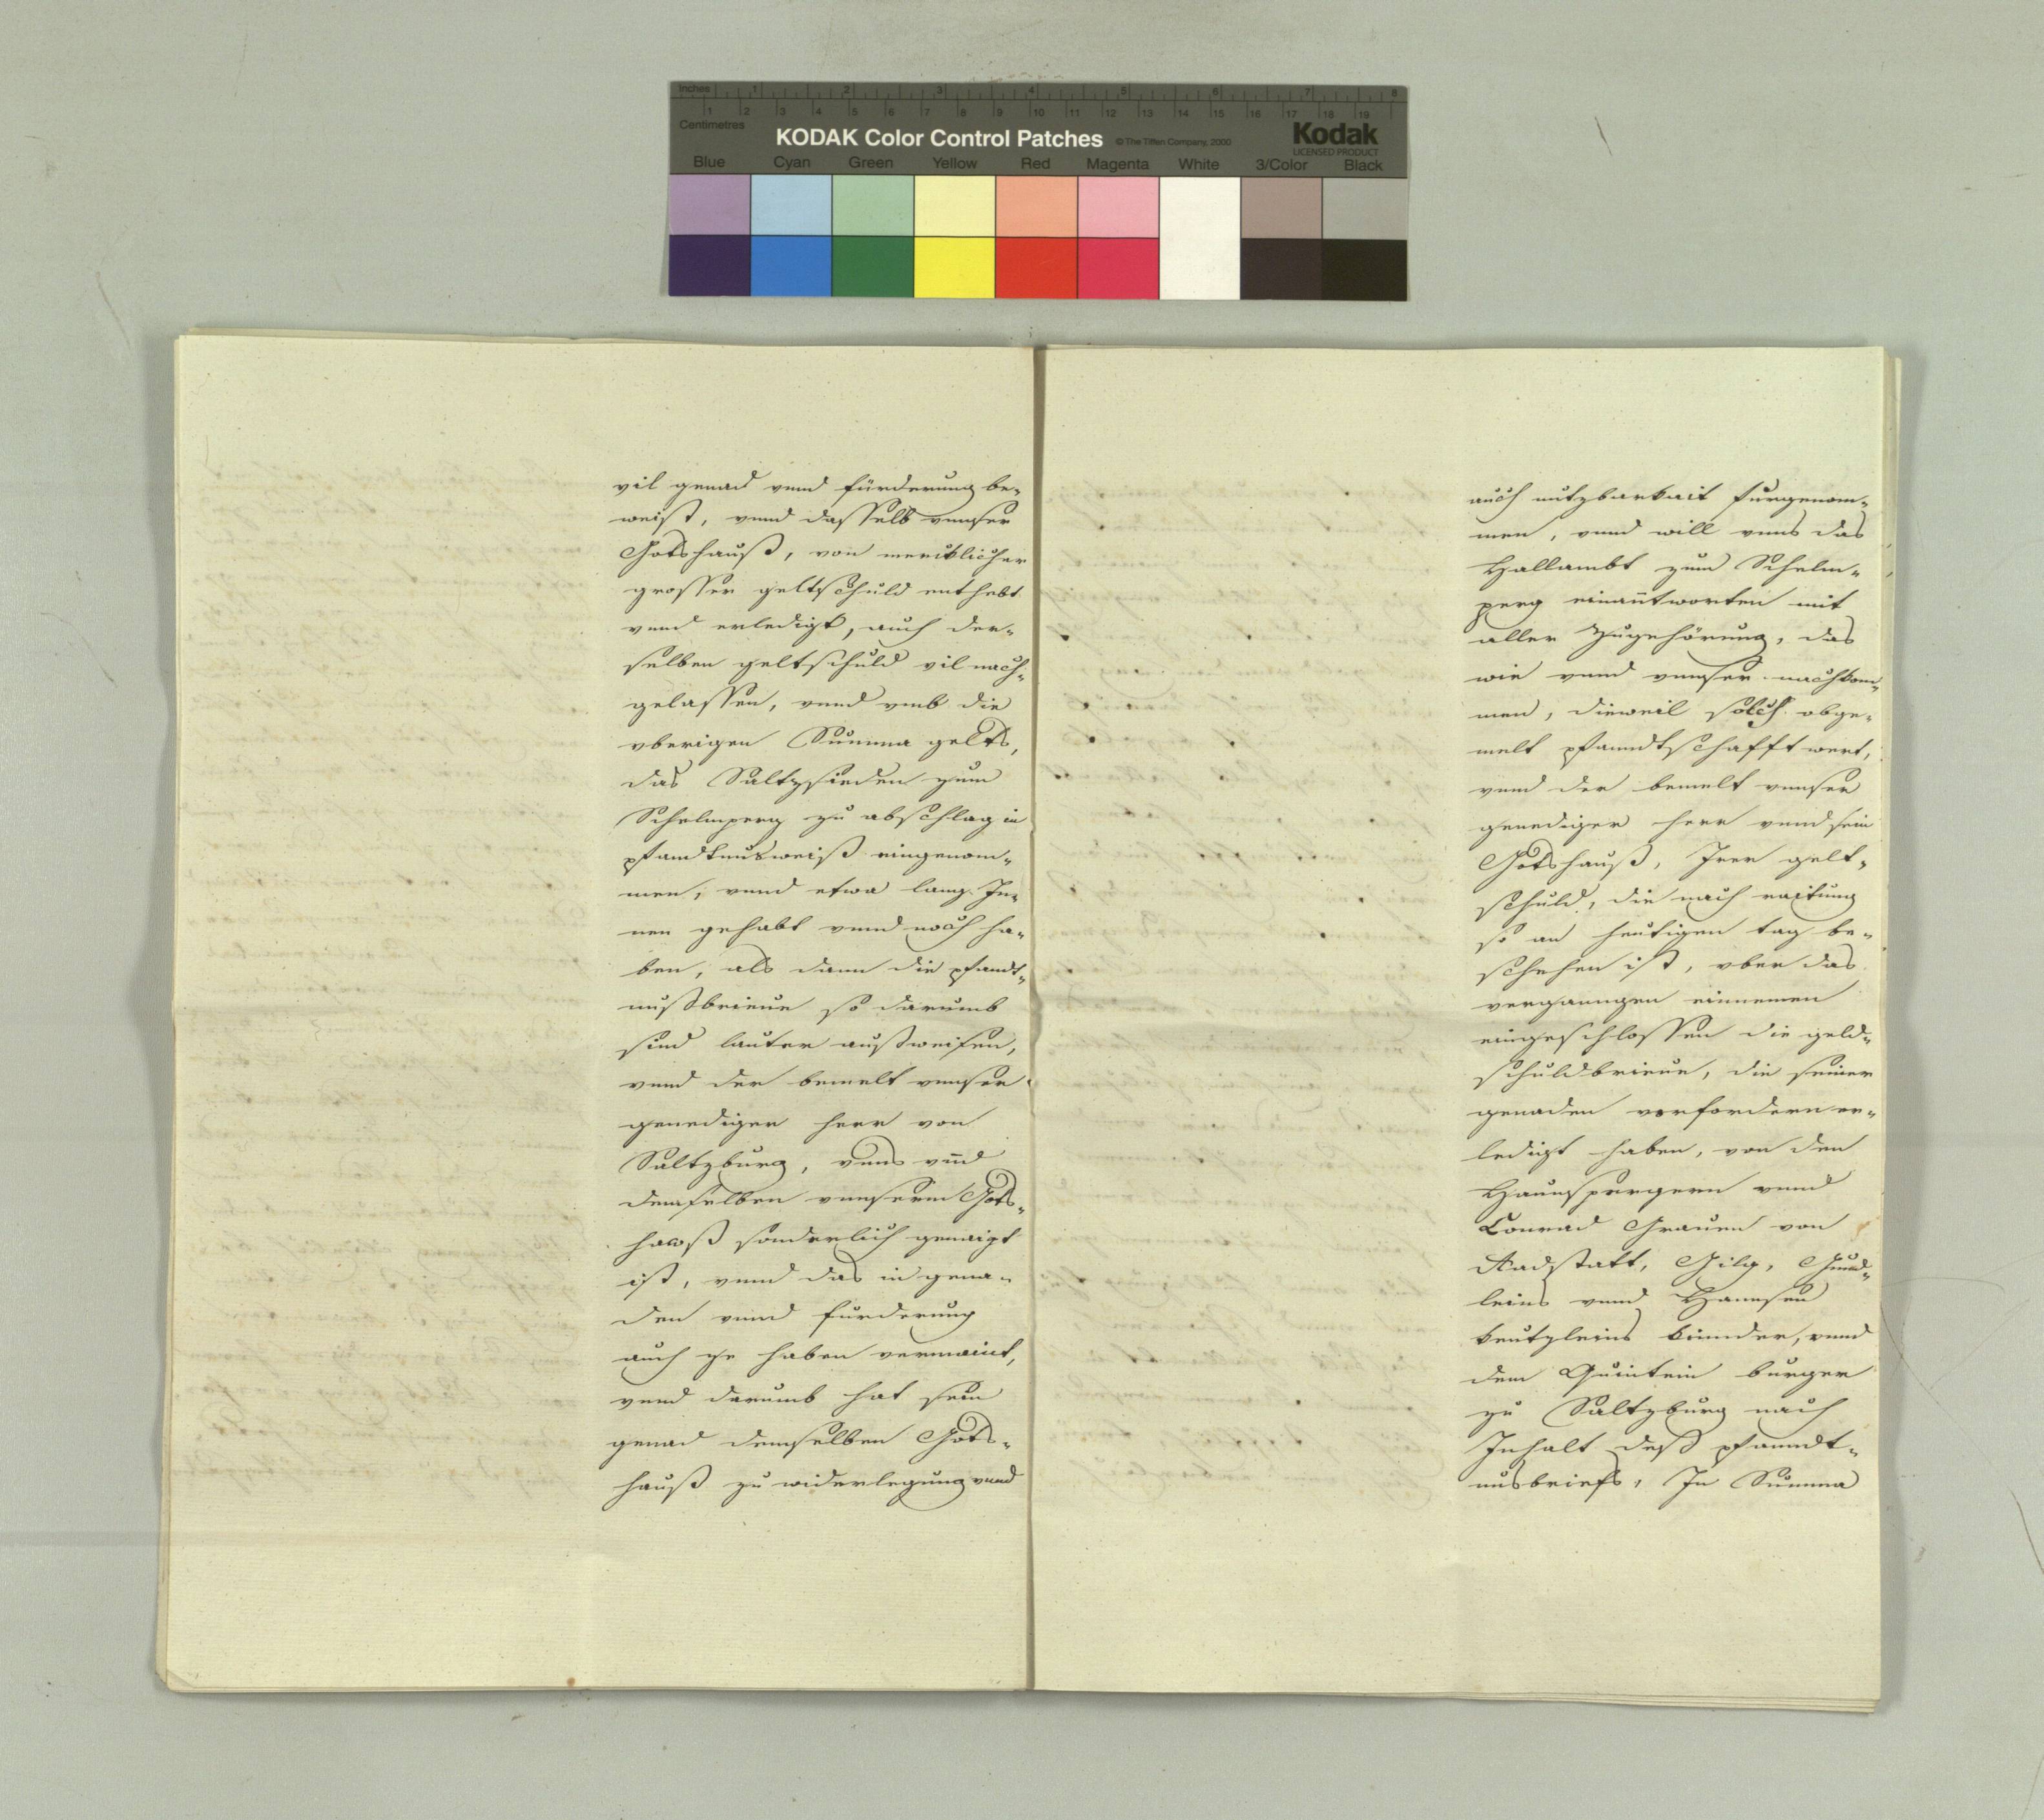 Inches 1 2 3 4 5 6 7 8
1 2 3 4 5 6 7 8 9 10 11 12 13 14 15 16 17 18 19
Centimetres
KODAK Color Control Patches © The Tiffen Company, 2000 Kodak
LICENSED PRODUCT
Blue Cyan Green Yellow Red Magenta White 3/Color Black
vil genad vnnd fürderung be-
weist, vnnd dasselb vnnser
Gotshauß, von mercklicher
grosser geltschuld enthebt
vnnd erledigt, auch der-
selben geltschuld vil nach-
gelassen, vnnd vmb die
vberigen Summa gelts,
das Saltzsieden zum
Schelmperg zu abschlag in
pfandtnusweiß eingenom-
men, vnnd etwa lang In-
nen gehabt vnnd noch ha-
ben, als dann die pfandt-
nußbrieue so darumb
sind lauter außweisen,
vnnd der bemelt vnnser
genediger herr von
Saltzburg, vnns vnnd
demselben vnnserm Gots-
hawß sonderlich genaigt
ist, vnnd das in gena-
den vnnd furderung
auch ze haben vermaint,
vnnd darumb hat sein
genad demselben Gots-
hauß zu widerlegung vnnd
auch nutzbarkait furgenom-
men, vnnd will vnns das
Hallambt zum Schelm-
perg einantworten mit
aller Zugehörung, das
wie vnnd vnnser nachkom-
men, dieweil solch obge-
melt pfanndtschafft wert,
vnnd der bemelt vnnser
genediger herr vnnd sein
Gotshauß, Irer gelt-
schuld, die nach raitung
so an heutigen tag be-
schehen ist, vber das
vergangen einnemen
eingeschlossen die geld-
schuldbrieue, die seiner
genaden vorfordern er-
ledigt haben, von den
Haunspergern vnnd
Conrad Grauen von
Radstatt, Gilg, Gund-
leins vnnd Hannsen
keutzleins kinnder, vnnd
dem Quintein burger
zu Saltzburg nach
Inhalt deß pfanndt-
nusbriefs, In Summa